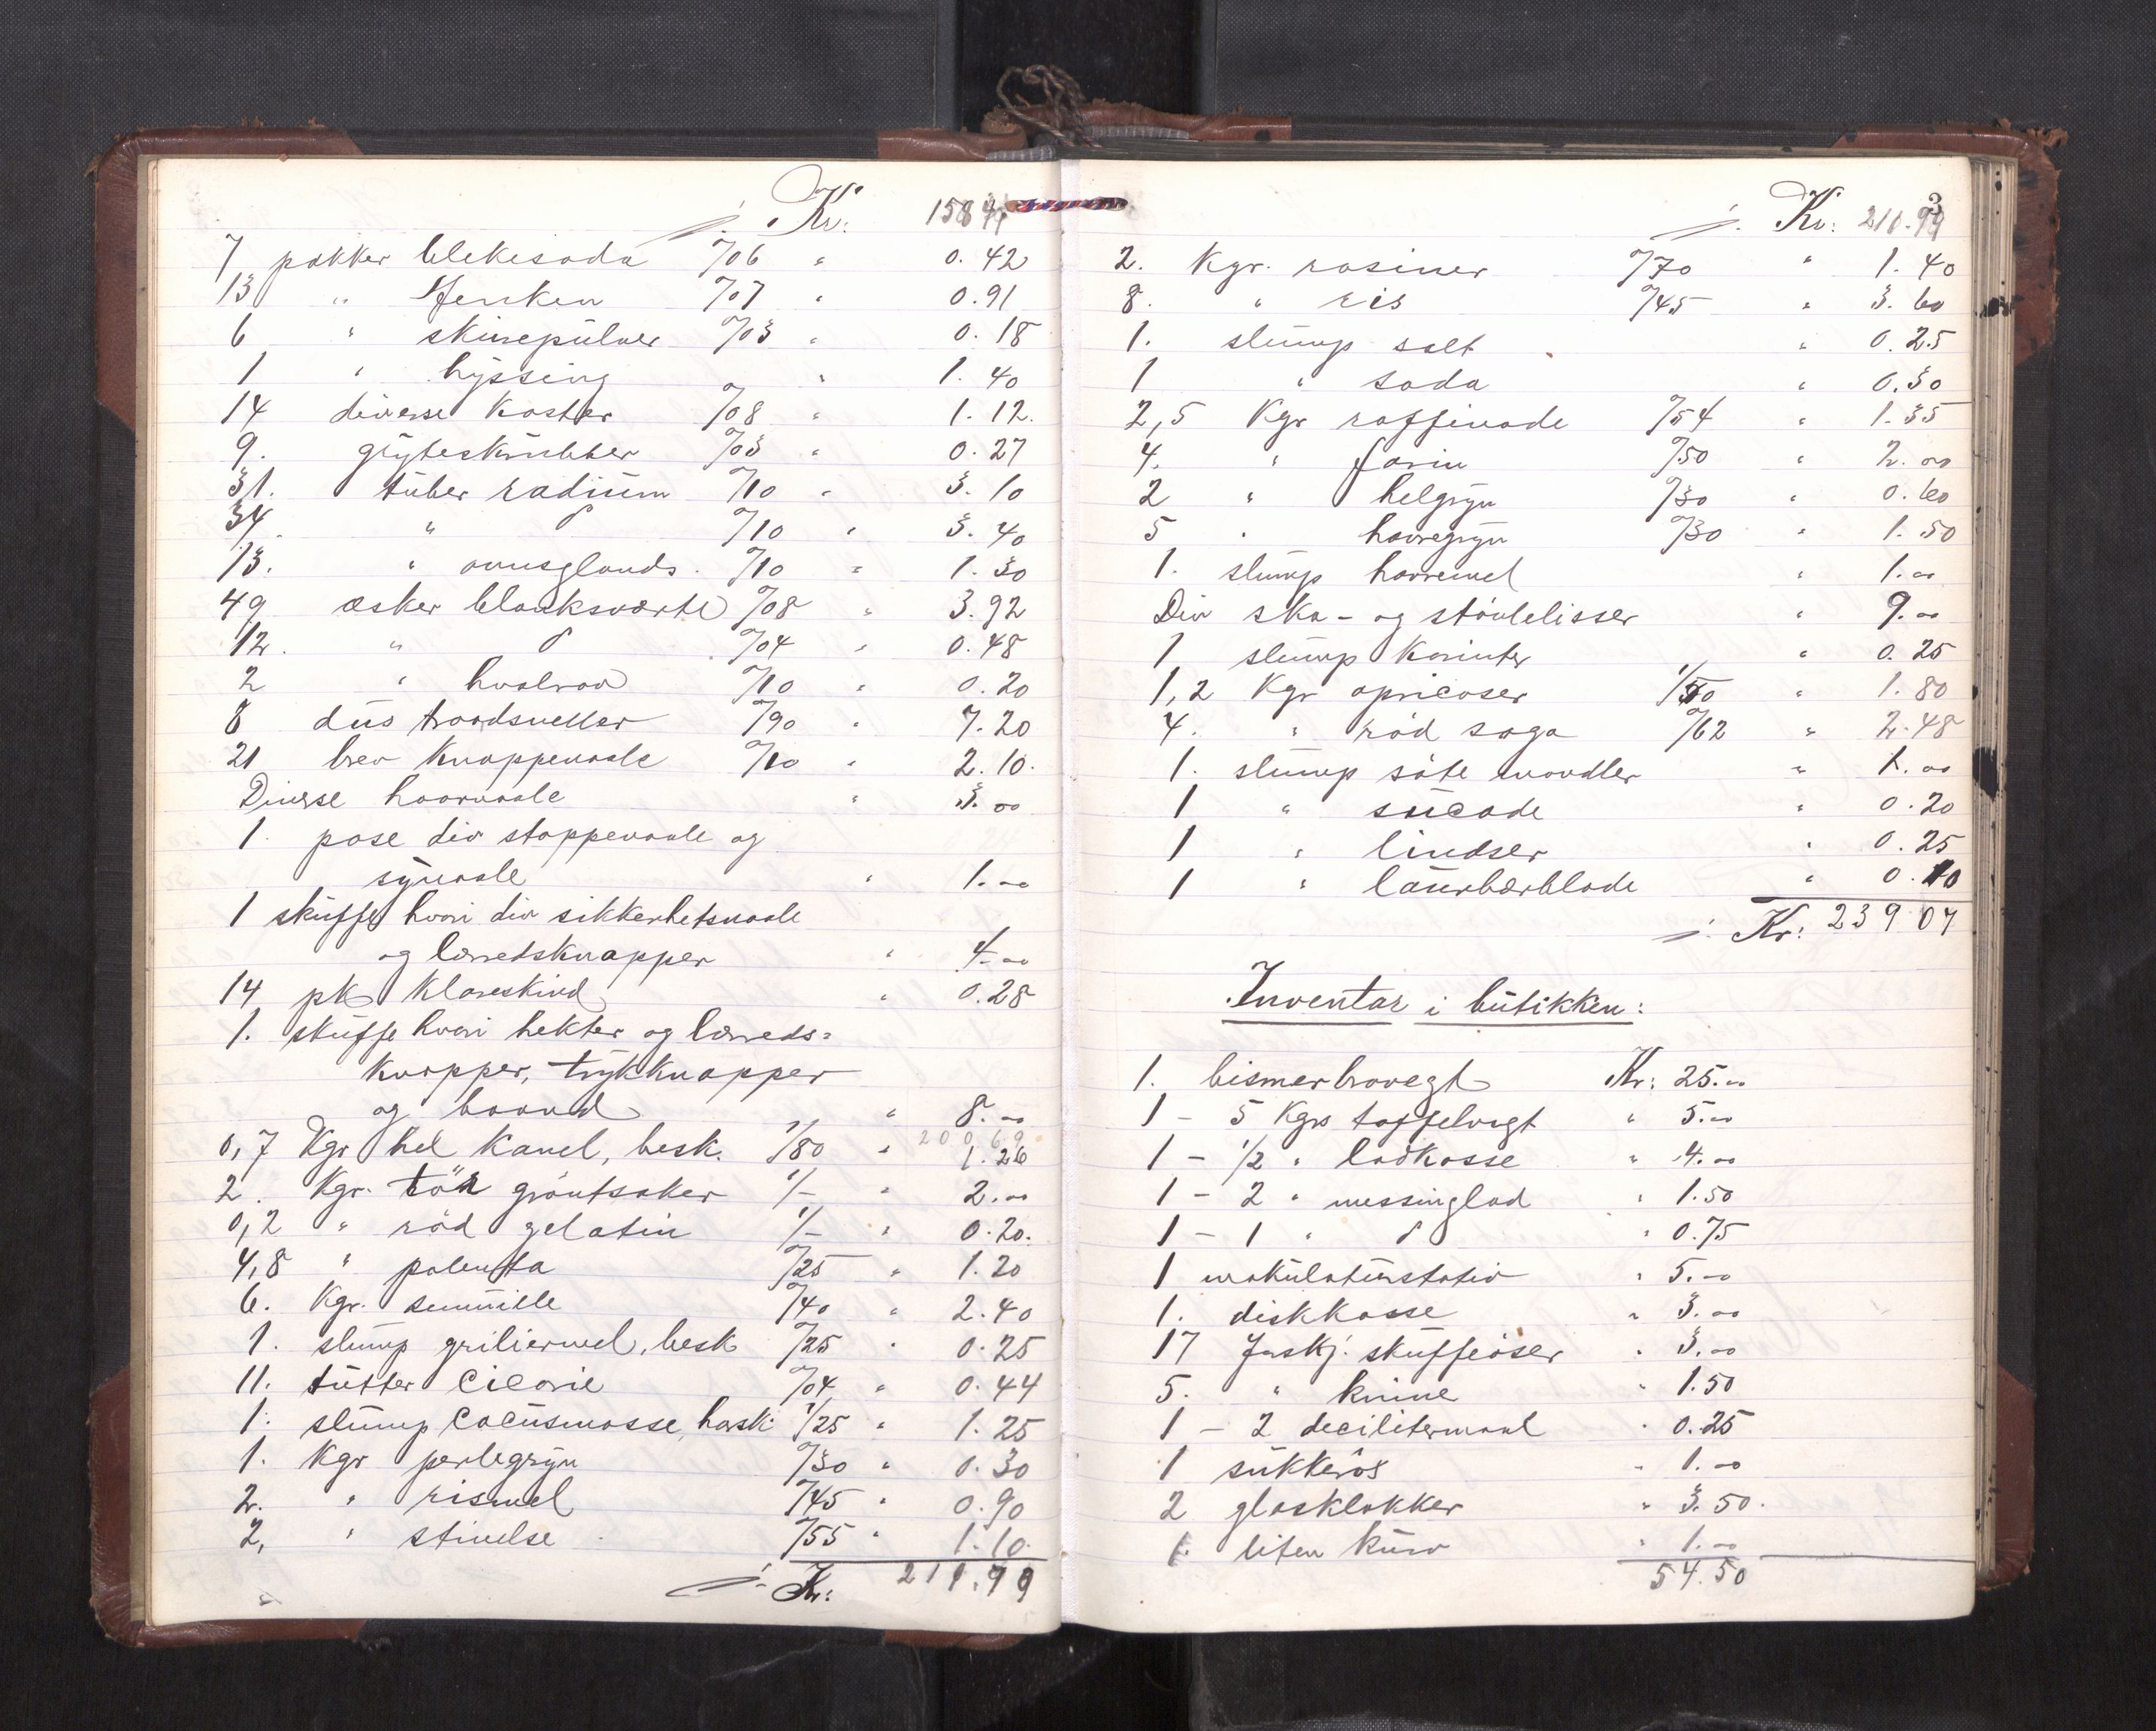 ./. Kr: 158 41
7 pakker blekesoda %06 " 0.42
13 " Henken %07 " 0.91
6 " skurepulver %03 " 0.18
1 " hyssing " 1.40
14 diverse koster %08 " 1.12.
9. gryteskrubber %03 " 0.27
31. tuber radium %10 " 3.10
34. " d %10 " 3.40
13. " ovnsglands. %10 " 1.30
49 æsker blanksværte %08 " 3.92
12. " d %04 " 0.48
2 " hvalrav %10 " 0.20
8 dus traadsneller %90 " 7.20
21 brev knappenaale %10 " 2.10.
Diverse haarnaale " 3.00
1. pose div stoppenaale og
synaale " 1.00
1 skuffe hvori div sikkerhetsnaale
og lærredsknapper " 4.00
14 pk klareskind " 0.28
1. skuffe hvori hekter og lærreds=
knapper, trykknapper
og baand " 8.00
200 69
0,7 Kgr hel kanel, besk. 1/80 " 1.26
2. Kgr. tör gröntsaker 1/- " 2.00
0,2 " röd gelatin 1/- " 0.20.
4,8 " polenta %25 " 1.20
6. Kgr. semulle %40 " 2.40
1. slump griliermel, besk %25 " 0.25
11. tutter Cicorie %04 " 0.44
1. slump Cocusmasse, harsk 1/25 " 1.25
1. Kgr perlegryn %30 " 0.30
2. " rismel %45 " 0.90
2, " stivelse %55 " 1.10
./. Kr: 211.99
3
./. Kr: 210.99
2. Kgr. rosiner %70 " 1.40
8. " ris %45 " 3.60
1. slump salt " 0.25
1 " soda " 0.30
2,5 Kgr raffinade %54 " 1.35
4. " farin %50 " 2.00
2 " helgryn %30 " 0.60
5 " havregryn %30 " 1.50
1. slump havremel " 1.00
Div sko- og stövlelisser " 9.00
1 slump korinter " 0.25
1,2 Kgr apricoser 1/50 " 1.80
4. " röd sago %62 " 2.48
1. slump söte mandler " 1.00
1 " sucade " 0.20
1 " lindser " 0.25
1 " laurbærblade " 0.10
./. Kr: 239 07
Inventar i butikken:
1. bismerbravegt Kr: 25.00
1 - 5 Kgrs taffelvegt " 5.00
1 - 1/2 " lodkasse " 4.00
1 - 2 " messinglod " 1.50
1 - 1 " d " 0.75
1 makulaturstativ " 5.00
1. diskkasse " 3.00
17 forskj. skuffeöser " 3.00
5. " knive " 1.50
1 - 2 decilitermaal " 0.25
1 sukkerös " 1.00
2 glasklokker " 3.50.
1. liten kurv " 1.00
54.50